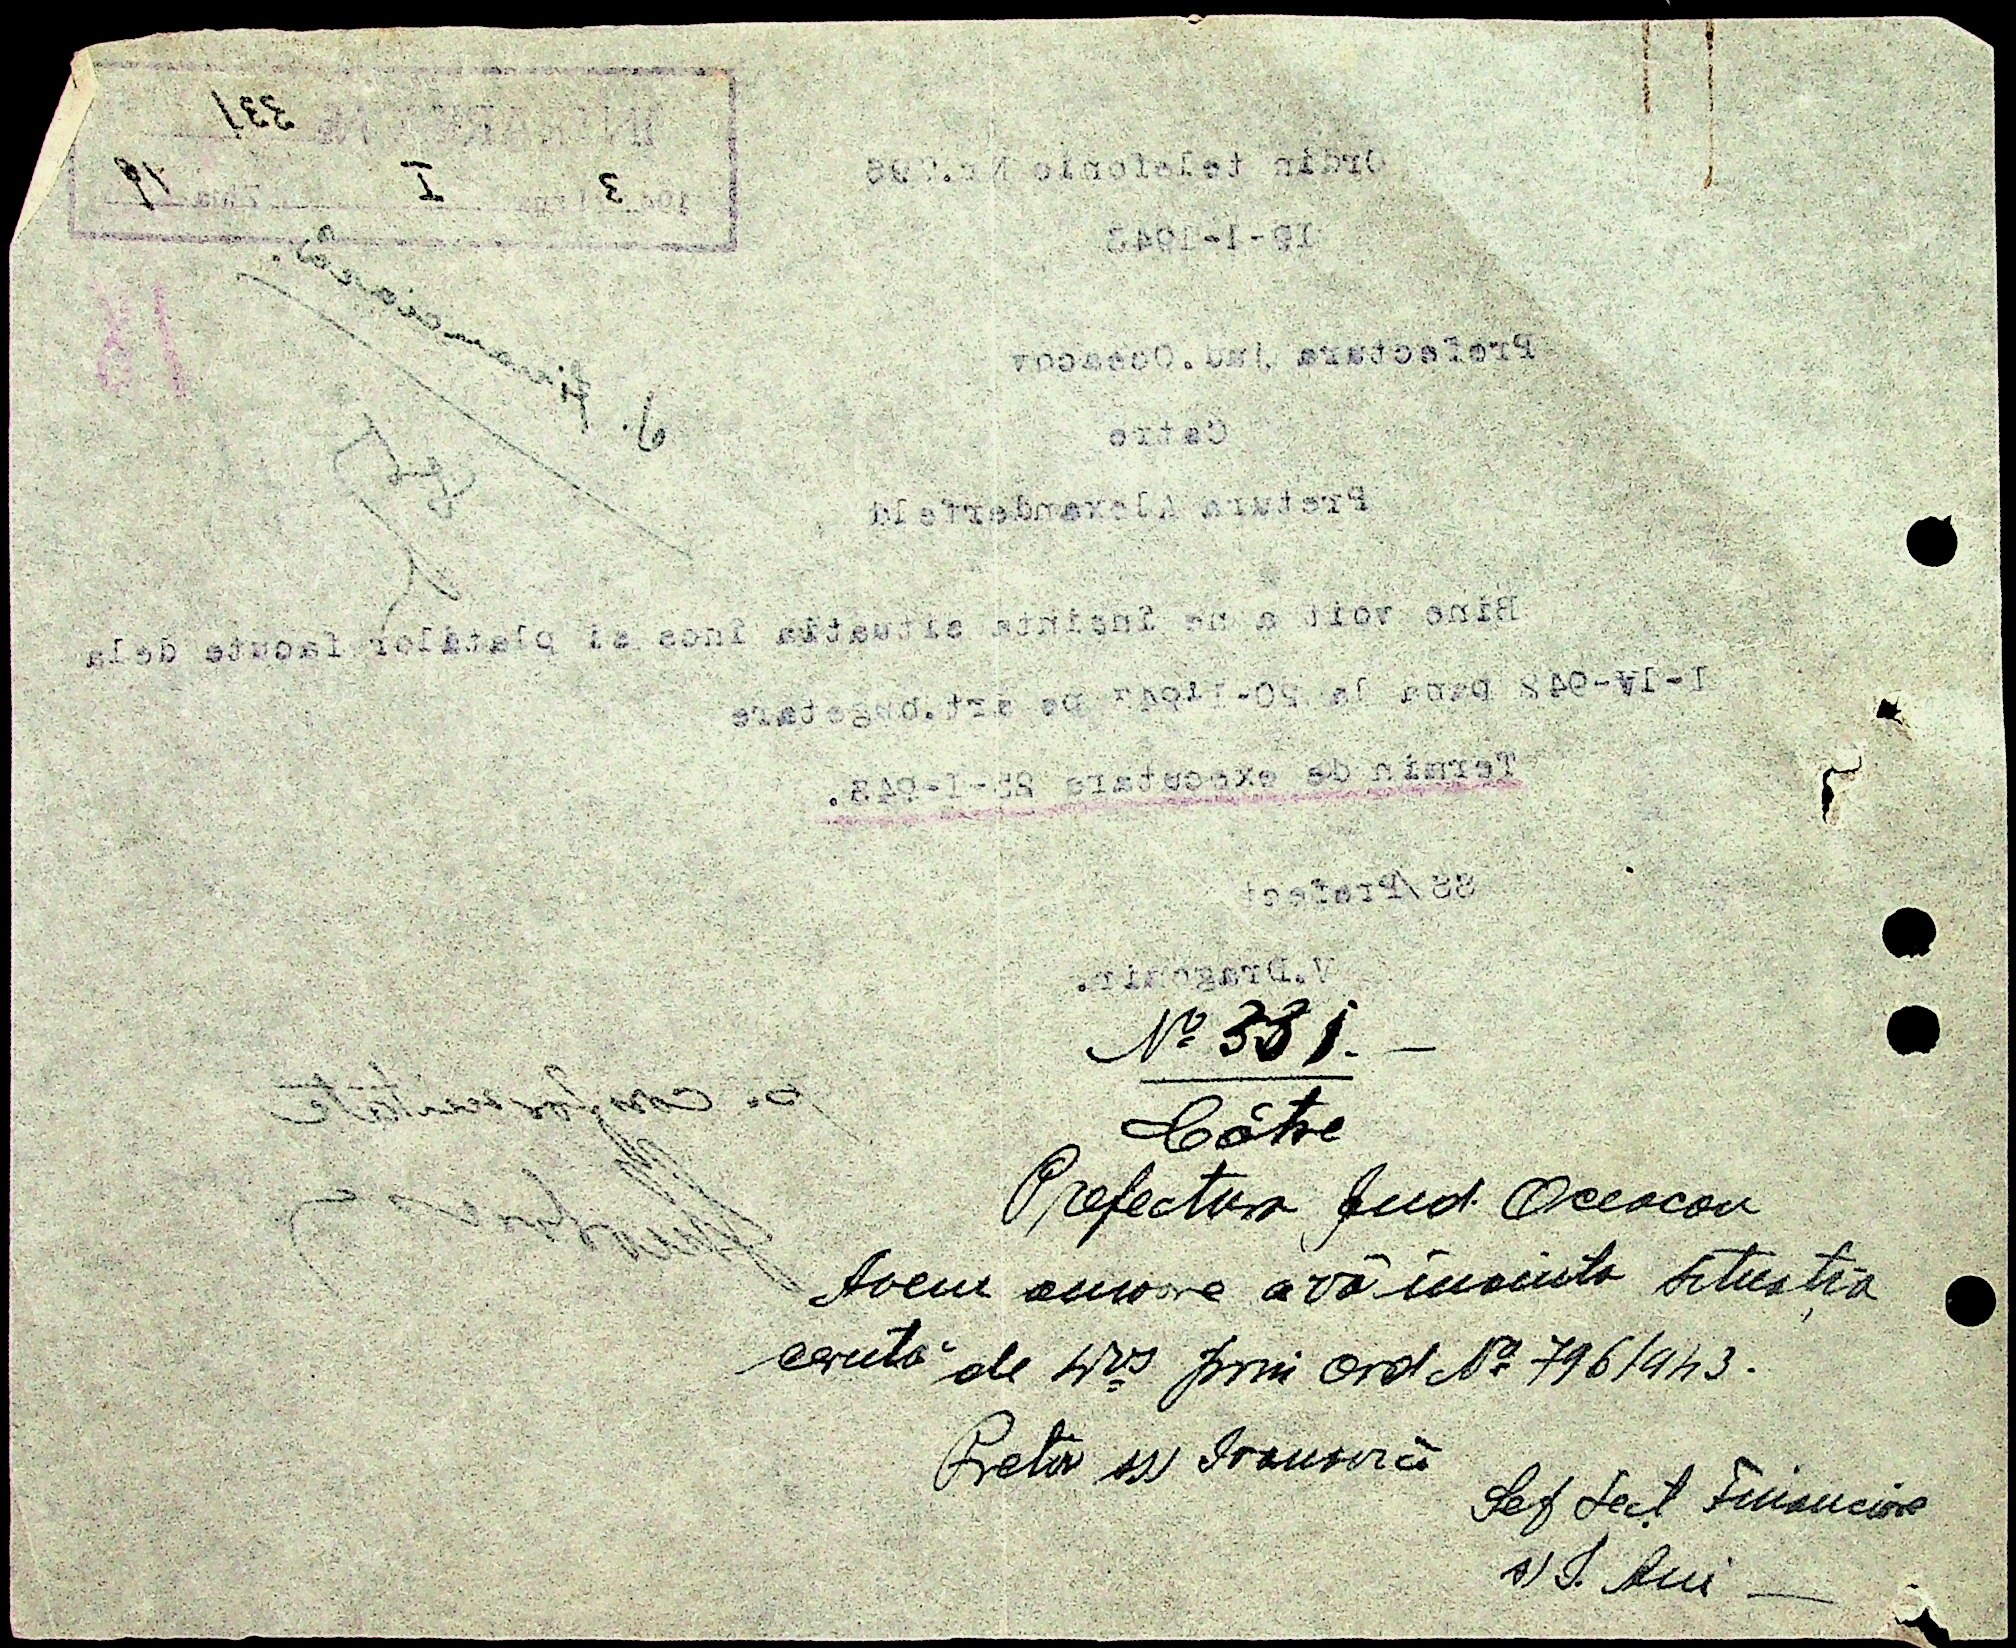 Nº 331. —
Către
Prefectura Jud. Oceacov
Avem onoare a vă înainta situația
cerută de Dvs prin ord Nº 796/943.
Pretor ss)
Șef Secț Financiare
s)
INTRARE Nº 331
194 3 Luna I Ziua 19
S. financiară.
18
Ordin telefonic Nr.796
19-1-1943
Prefectura jud.Oceacov
Catre
Pretura Alexanderfeld
Bine voiti a ne inainta situatia incs si platilor facute dela
1-IV-942 pana la 20-I-943 pe art.bugetare
Termin de executare 25-I-943.
SS/Prefect
V.Dragomir.
p. conformitate